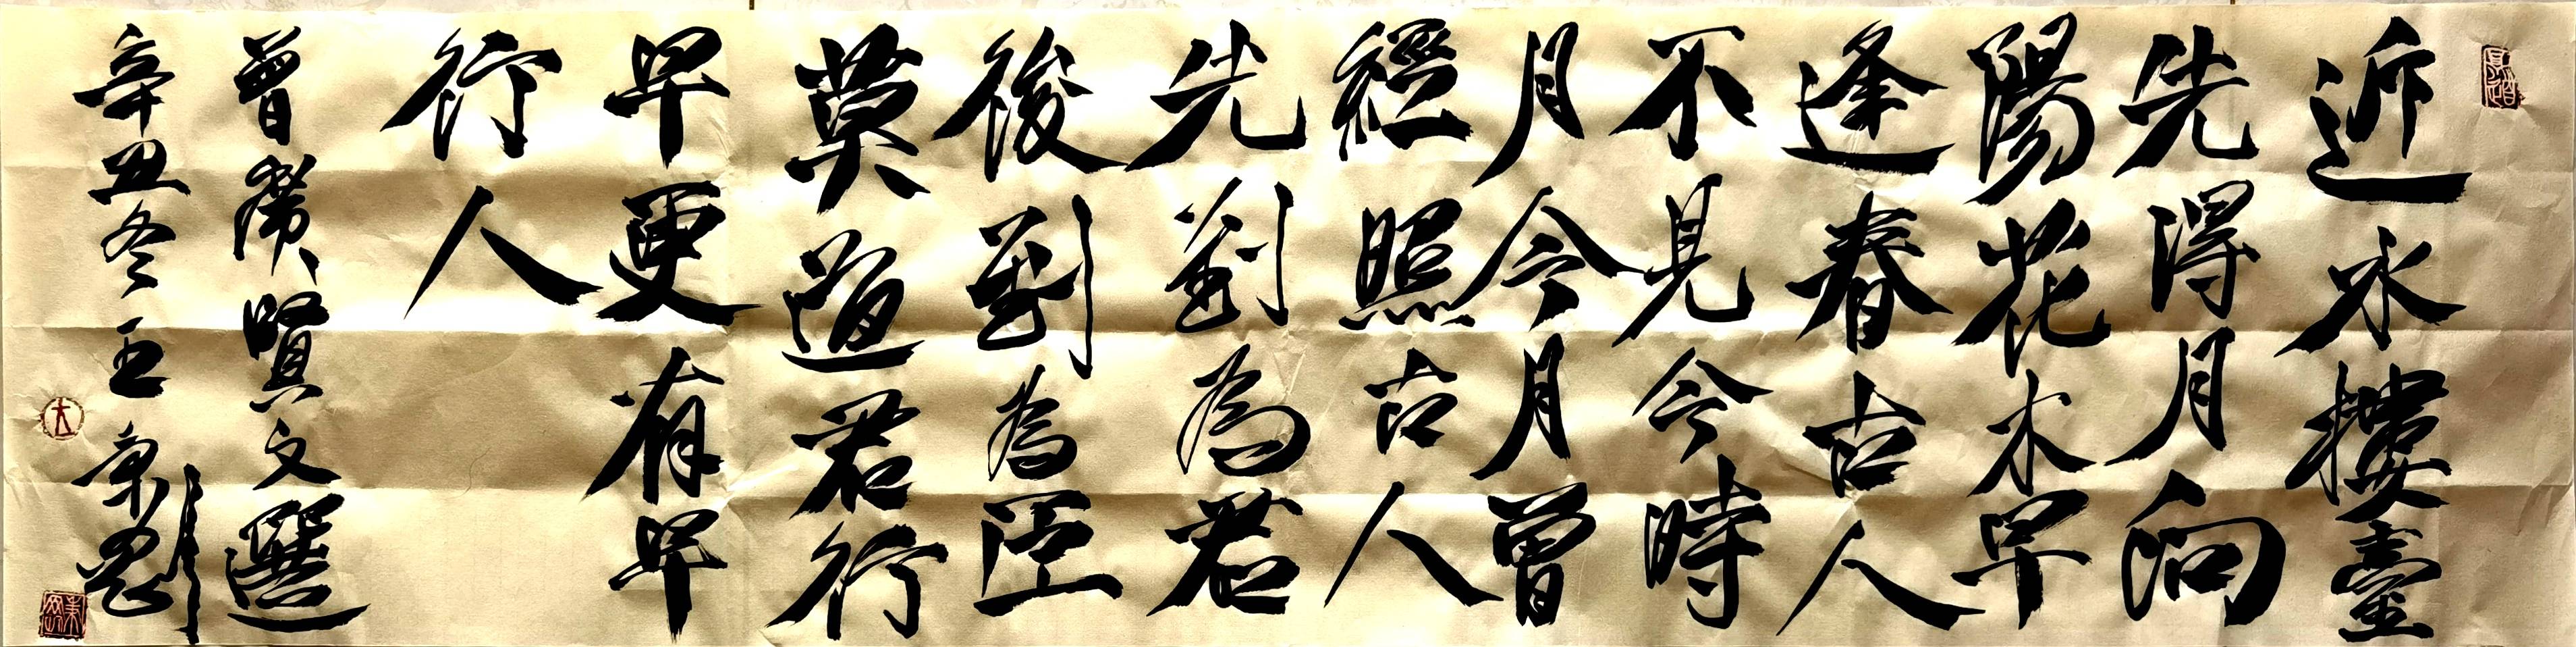 近水樓臺
先得月向
陽花木早
逢春古人
不見今時
月今月曾
經照古人
先到為君
後到為臣
莫道君行
早更有早
行人
曾廣賢文選
辛丑冬
大